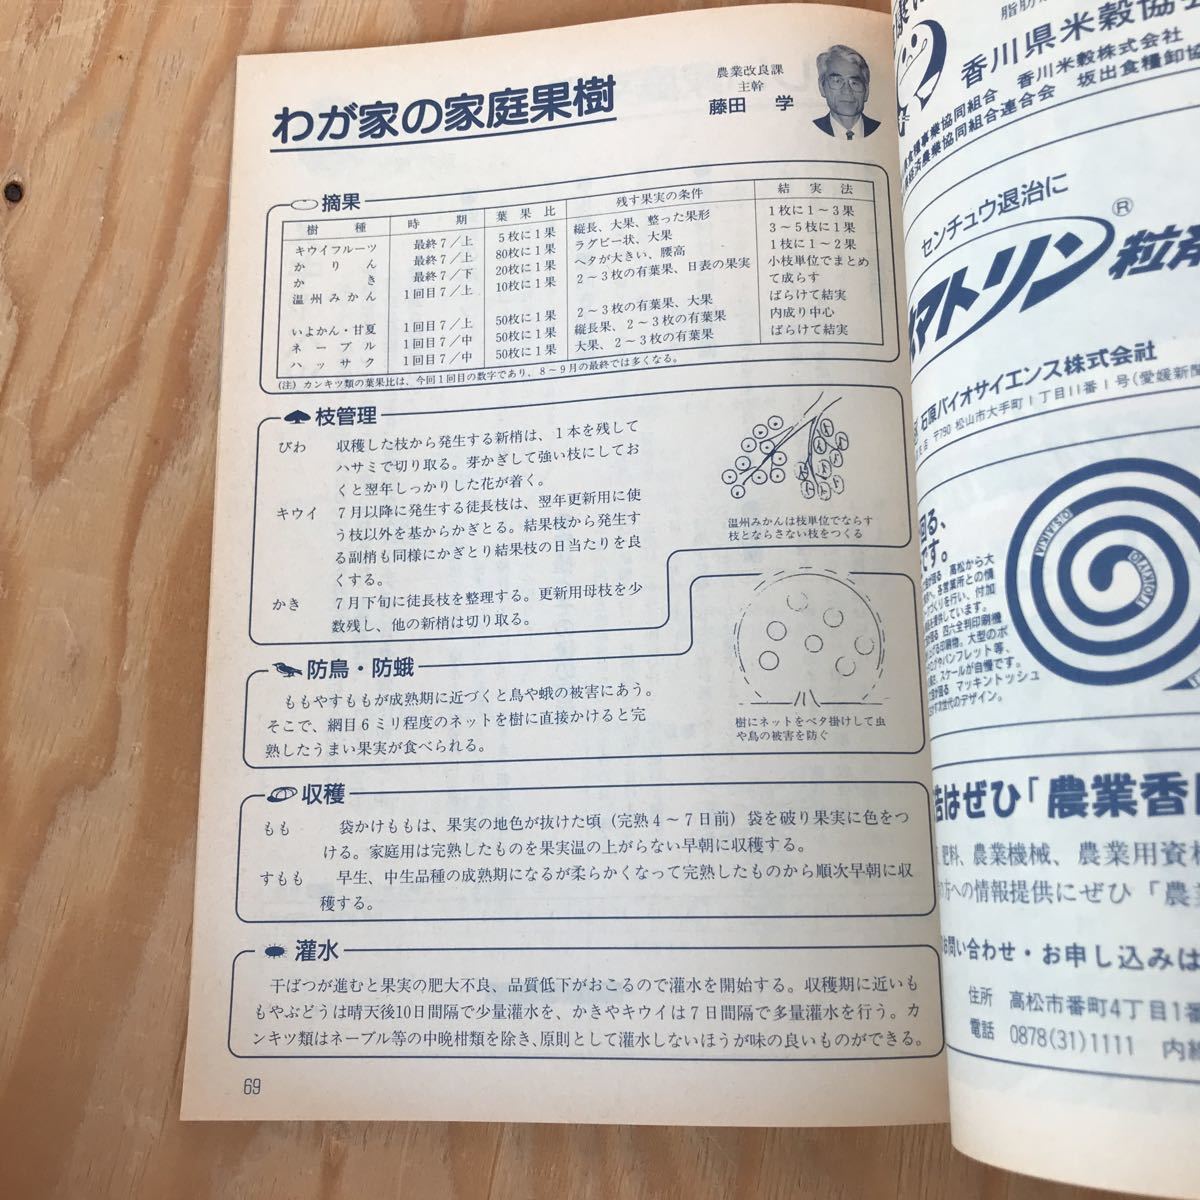 わが家の家庭果樹
農業改良課
主幹
藤田 学
摘果
樹種 時期 葉果比 残す果実の条件 結実法
キウイフルーツ 最終7/上 5枚に1果 縦長、大果、整った果形 1枚に1~3果
かりん 最終7/上 80枚に1果 ラグビー状、大果 3~5枝に1果
かき 最終7/下 20枚に1果 ヘタが大きい、腰高 1枝に1~2果
温州みかん 1回目7/上 10枚に1果 2~3枚の有葉果、日表の果実 小枝単位でまとめ
て成らす
いよかん・甘夏 1回目7/上 50枚に1果 2~3枚の有葉果、大果 ばらけて結実
ネーブル 1回目7/中 50枚に1果 縦長果、2~3枚の有葉果 内成り中心
ハッサク 1回目7/中 50枚に1果 大果、2~3枚の有葉果 ばらけて結実
(注) カンキツ類の葉果比は、今回1回目の数字であり、8~9月の最終では多くなる。
枝管理
びわ 収穫した枝から発生する新梢は、1本を残して
ハサミで切り取る。芽かぎして強い枝にしてお
くと翌年しっかりした花が着く。
キウイ 7月以降に発生する徒長枝は、翌年更新用に使
う枝以外を基からかぎとる。結果枝から発生す
る副梢も同様にかぎとり結果枝の日当たりを良
くする。
かき 7月下旬に徒長枝を整理する。更新用母枝を少
数残し、他の新梢は切り取る。
温州みかんは枝単位でならす
枝とならさない枝をつくる
防鳥・防蛾
ももやすももが成熟期に近づくと鳥や蛾の被害にあう。
そこで、網目6ミリ程度のネットを樹に直接かけると完
熟したうまい果実が食べられる。
樹にネットをベタ掛けして虫
や鳥の被害を防ぐ
収穫
もも 袋かけももは、果実の地色が抜けた頃(完熟4~7日前)袋を破り果実に色をつ
ける。家庭用は完熟したものを果実温の上がらない早朝に収穫する。
すもも 早生、中生品種の成熟期になるが柔らかくなって完熟したものから順次早朝に収
穫する。
灌水
干ばつが進むと果実の肥大不良、品質低下がおこるので灌水を開始する。収穫期に近いも
もやぶどうは晴天後10日間隔で少量灌水を、かきやキウイは7日間隔で多量灌水を行う。カ
ンキツ類はネーブル等の中晩柑類を除き、原則として灌水しないほうが味の良いものができる。
69
香川県米穀協
香川米穀株式会社
事業協同組合
経済農業協同組合連合会 坂出食糧卸協
センチュウ退治に
マトリン 粒剤
®
石原バイオサイエンス株式会社
〒790 松山市大手町1丁目11番1号(愛媛新聞
回る、
です。
高松から大
各営業所との情
づくりを行い、付加
を提供しています。
四六全判印刷機
印刷物。大型のポ
パンフレット等、
スケールが自慢です。
マッキントッシュ
次世代のデザイン。
はぜひ「農業香
肥料、農業機械、農業用資
方への情報提供にぜひ「農
お問い合わせ・お申し込みは
住所 高松市番町4丁目1番
電話 0878(31)1111 内線